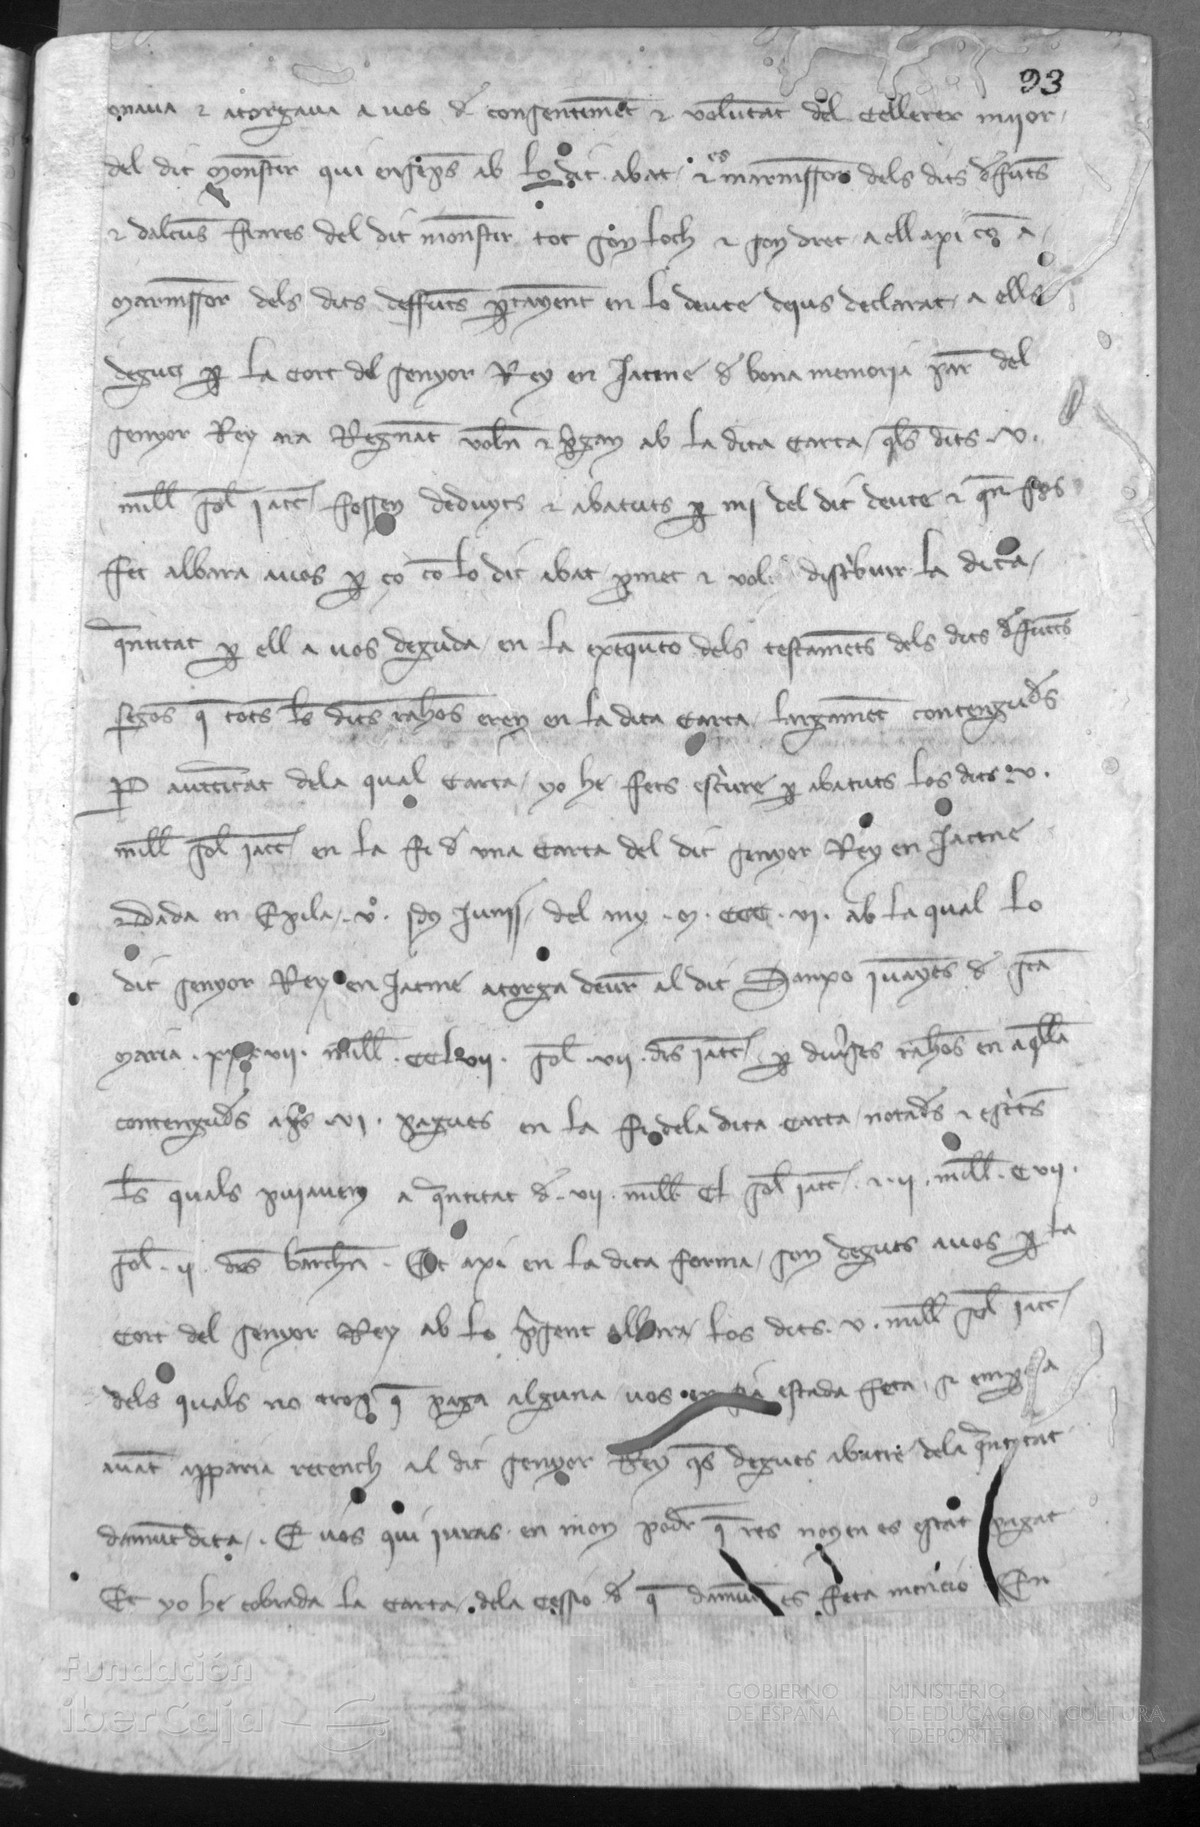 93
onaua & atorgaua a uos de consentimēt & uolūtat del Cellerer maior
del dit monēstir qui ensēps ab lo dit abat es marmessor dels dits defūts
& dalcūs frares del dit monestir tot son loch & son dret a ell axi com a
marmessor dels dits deffūts ptayent en lo deute dejus declarat a ells
degut p la Cort del senyor Rey en Jacme de bona memoria pare del
senyor Rey ara Regnāt uolē & pgan ab la dita Carta qls dits .V.
mill sol iacc fossen deduyts & abatuts p mi del dit deute & qn fos
fet albara auos p ço co lo dit abat pmet & uol distbuir la dita
qntitat p ell a uos deguda en la exequcio dels testamēts dels dits defūcts
segons q totes les dites rahōs eren en la dita Carta largamēt contengudes
P auctitat dela qual Carta yo he fets escriure p abatuts los dits .V.
mill sol iacc en la fi de una Carta del dit senyor Rey en Jacme
Dada en Epila .V. idus Junii del any .M.CCC.VI. ab la qual lo
dit senyor Rey en Jacme atorga deure al dit Sanxo iuaynes de sta
maria .xxxvii. mill .CCLvii. sol .vii. drs iacc p diuses rahōs en aqlla
contengudes aps .VI. pagues en la fi dela dita Carta notades & escites
les quals puiauen a qntitat de .vii. mill CL sol iacc & .ii. mill .Cvii.
sol .ii. drs barchn. Et axi en la dita forma son deguts auos p la
Cort del senyor Rey ab lo psent albara los dits .v. mill sol iacc
dels quals no trop q paga alguna uos estada feta si empo a
auāt apparia retench al dit senyor Rey qs degues abatre dela qntitat
damūt dita. E uos qui iuras en mon poder q res non es estat pagat
Et yo he cobrada la carta dela Cessio de q damūt es feta mencio En
Fundación
iberCaja
GOBIERNO
DE ESPAÑA
MINISTERIO
DE EDUCACIÓN, CULTURA
Y DEPORTE